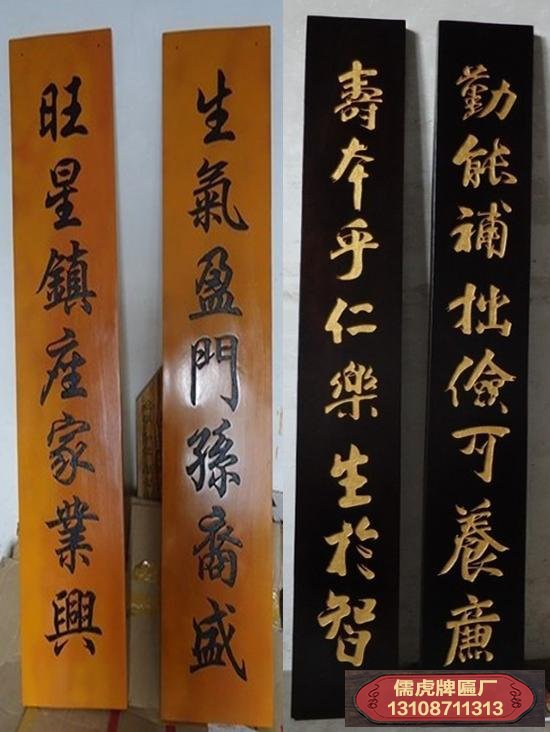 生氣盈門孫裔盛
旺星鎮座家業興
勤能補拙儉可養廉
壽本乎仁樂生於智
儒虎牌匾厂
13108711313